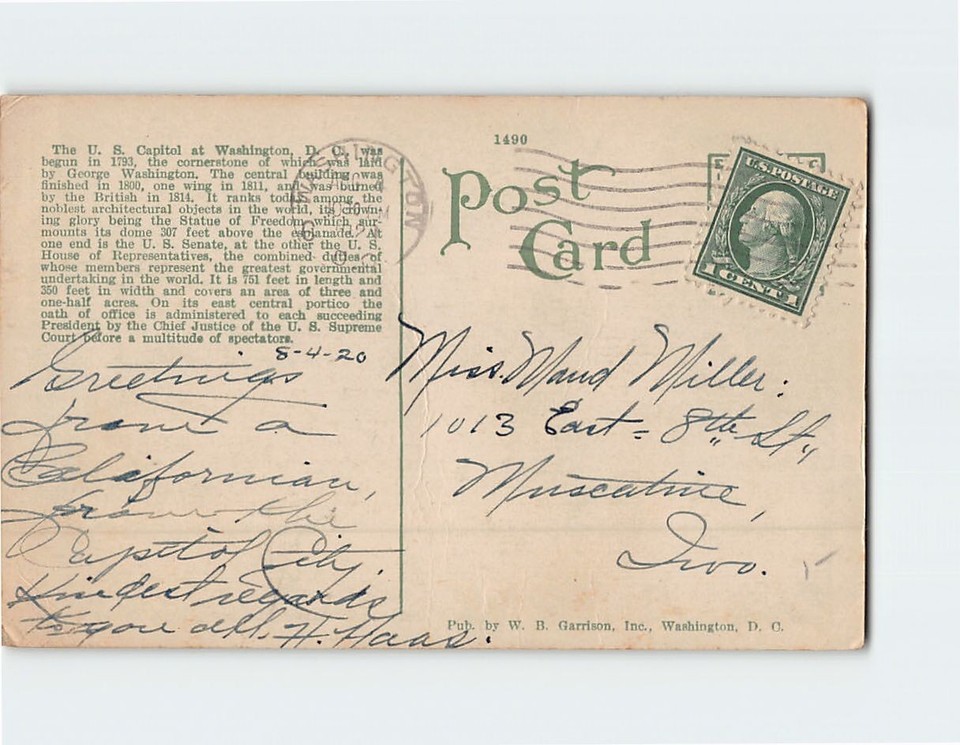 1490
The U. S. Capitol at Washington, D. C. was
begun in 1793, the cornerstone of which was laid
by George Washington. The central building was
finished in 1800, one wing in 1811, and was burned
by the British in 1814. It ranks today among the
noblest architectural objects in the world, its crown-
ing glory being the Statue of Freedom which sur-
mounts its dome 307 feet above the esplanade. At
one end is the U. S. Senate, at the other the U. S.
House of Representatives, the combined duties of
whose members represent the greatest governmental
undertaking in the world. It is 751 feet in length and
350 feet in width and covers an area of three and
one-half acres. On its east central portico the
oath of office is administered to each succeeding
President by the Chief Justice of the U. S. Supreme
Court before a multitude of spectators.
8-4-20
Greetings
from a
Californian,
from the
Capitol City.
Kindest regards
to you all. H. Haas.
WASHINGTON
Post
Card
U.S. POSTAGE
1 CENT 1
Miss. Maud Miller.
1013 East = 8th St.,
Muscatine,
Iwo.
Pub. by W. B. Garrison, Inc., Washington, D. C.